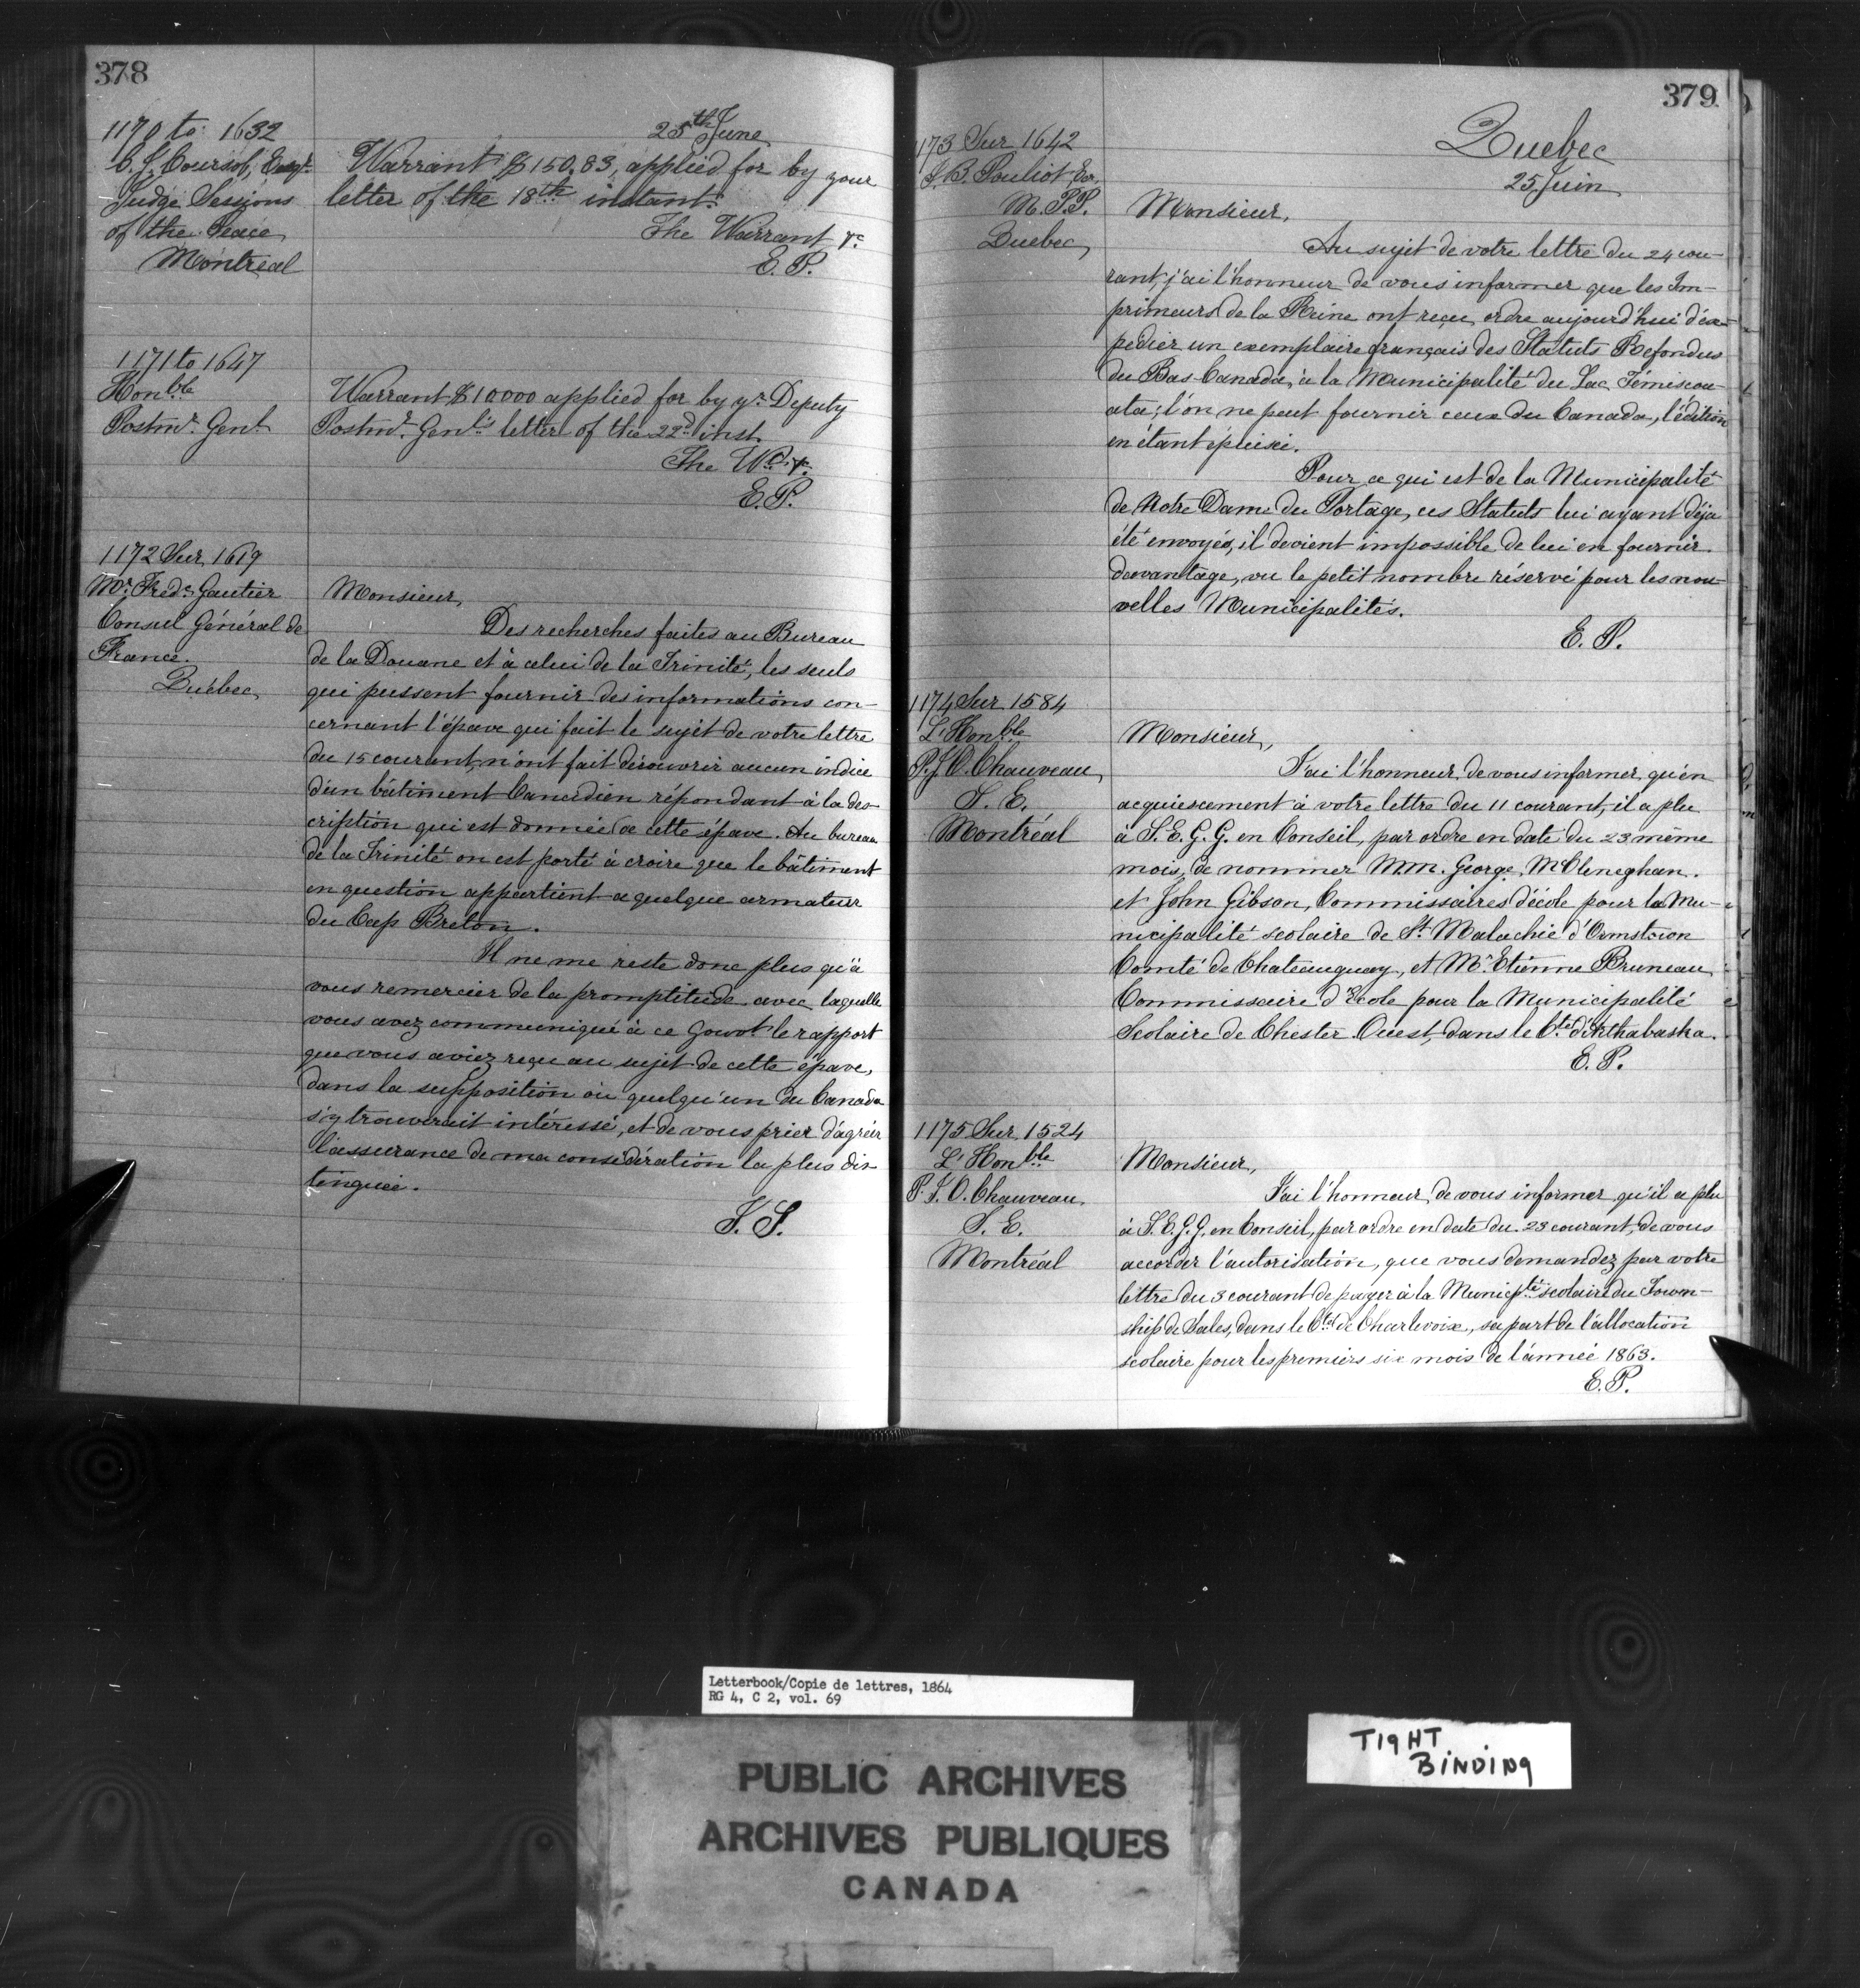 378
25th June
1170 to 1632
C. J. Coursol, Esqr.
Judge Sessions
of the Peace
Montreal
Warrant $150,83, applied for by your
letter of the 18th instant.
The Warrant &c
E. P.
1171 to 1647
Honble
Postmr. Genl.
Warrant $10000 applied for by yr. Deputy
Postmr. Genl's letter of the 22d inst.
The Wt. &c.
E. P.
1172 Sur 1619
Mr. Fredc. Gautier
Consul Général de
France.
Québec
Monsieur,
Des recherches faites au Bureau
de la Douane et à celui de la Trinité, les seuls
qui pussent fournir des informations con-
cernant l'épave qui fait le sujet de votre lettre
du 15 courant, n'ont fait découvrir aucun indice
d'un bâtiment Canadien répondant à la des-
cription qui est donnée de cette épave. Au bureau
de la Trinité on est porté à croire que le bâtiment
en question appartient a quelque armateur
du Cap Breton.
Il ne me reste donc plus qu'à
vous remercier de la promptitude avec laquelle
vous avez communiqué à ce Govt le rapport
que vous aviez reçu au sujet de cette épave,
dans la supposition où quelqu'un du Canada
s'y trouverait intéressé, et de vous prier d'agréer
l'assurance de ma considération la plus dis-
tinguée.
379
Quebec
25 Juin
173 Sur 1642
J. B. Pouliot Ecr.
M. P.P.
Quebec
Monsieur,
Au sujet de votre lettre du 24 cou-
rant, j'ai l'honneur de vous informer que les Im-
primeurs de la Reine ont reçu ordre aujourd'hui d'ex-
pedier un exemplaire français des Statuts Refondus
du Bas Canada, à la Municipalité du Lac Témiscou-
ata; l'on ne peut fournir ceux du Canada, l'édition
en étant épuisée.
Pour ce qui est de la Municipalité
de Notre Dame du Portage, ces Statuts lui ayant déja
été envoyés, il devient impossible de lui en fournir
davantage, vu le petit nombre réservé pour les nou-
velles Municipalités.
E. P.
1174 Sur 1584
L'Honble
P. J. O. Chauveau,
S. E.
Montréal
Monsieur,
J'ai l'honneur de vous informer qu'en
acquiescement à votre lettre du 11 courant, il a plu
à S. E. G. G. en Conseil, par ordre en date du 23 même
mois, de nommer M.M. George McCleneghan
et John Gibson, Commissaires d'école pour la Mu-
nicipalité scolaire de St. Malachie d'Ormstown
Comté de Chateauguay, et Mr. Etienne Bruneau
Commissaire d'Ecole pour la Municipalité
Scolaire de Chester Ouest, dans le Cté. d'Arthabaska.
E. P.
1175 Sur 1524
L'Honble
P. J. O. Chauveau.
S. E.
Montréal
Monsieur,
J'ai l'honneur de vous informer qu'il a plu
à S. E. G. G. en Conseil, par ordre en date du 23 courant, de vous
accorder l'autorisation, que vous demandez par votre
lettre du 3 courant de payer à la Municipté scolaire du Town-
ship de Sales, dans le Cté. de Charlevoix, sa part de l'allocation
scolaire pour les premiers six mois de l'année 1863.
E. P.
Letterbook/Copie de lettres, 1864
RG 4, C 2, vol. 69
PUBLIC ARCHIVES
ARCHIVES PUBLIQUES
CANADA
TIGHT
BINDING